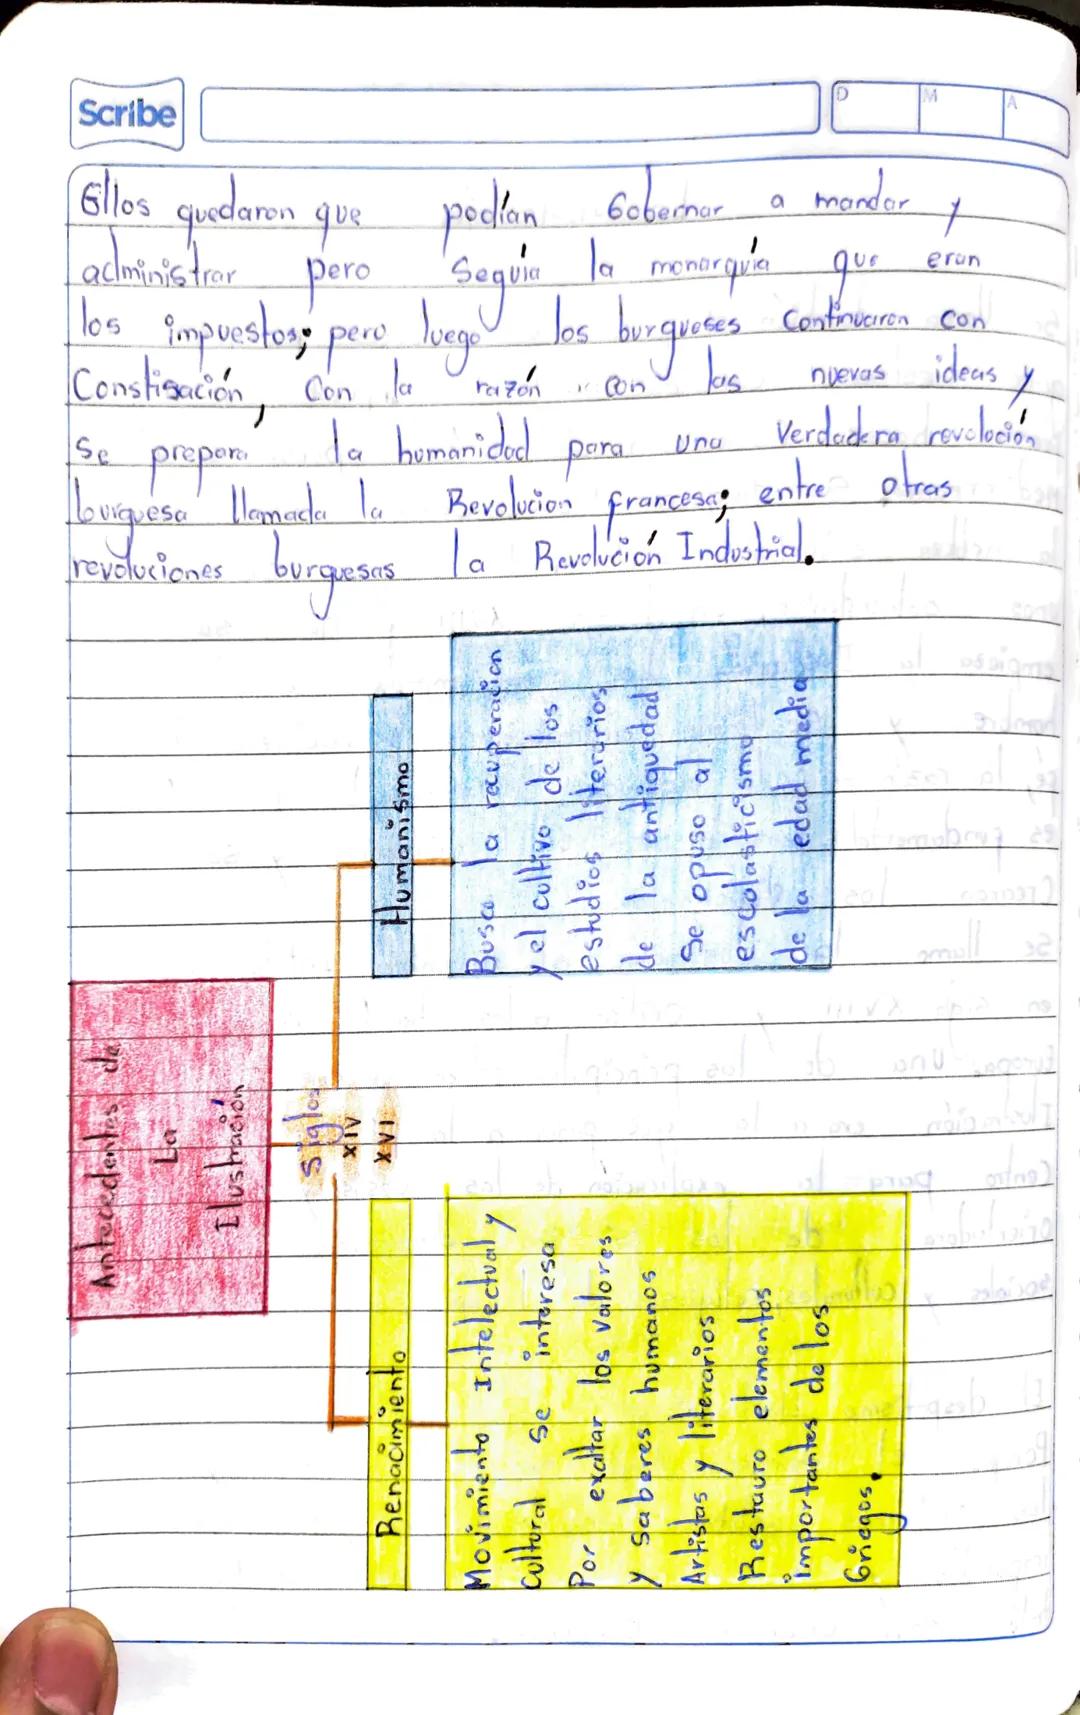 Scribe
D M A
Ellos quedaron que podían Gobernar a mandar y
administrar pero Seguía la monarquía que eran
los impuestos; pero luego los burgueses Continuaron con
Constigación, Con la razón con las nuevas ideas y
Se prepara la humanidad para una Verdadera revolución
burguesa llamada la Revolucion francesa; entre otras
revoluciones burguesas la Revolución Industrial.
Antecedentes de
La
Ilustración
Siglos
XIV
XVI
Renacimiento
Movimiento Intelectual y
Cultural Se interesa
Por exaltar los valores
y saberes humanos
Artistas y literarios
Restauro elementos
importantes de los
Griegos.
Humanismo
Busca la recuperacion
y el cultivo de los
estudios literarios
de la antiguedad
Se opuso al
escolasticismo
de la edad media